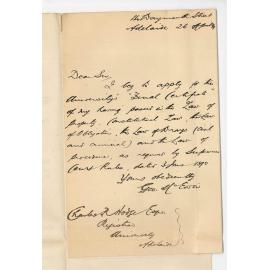 Adelaide 26 April
Dear Sir,
I beg to apply for the
University's "Final Certificate"
of my having passed in the Law of
Property, Constitutional Law, the Law
of Obligations, the Law of Wrongs (civil
and criminal) and the Law of
procedure, as required by Supreme
Court Rules, dated 3 June 1890
Yours obediently
Geo. Mc Ewin
Charles R Hodge Esqre
Registrar
University
Adelaide